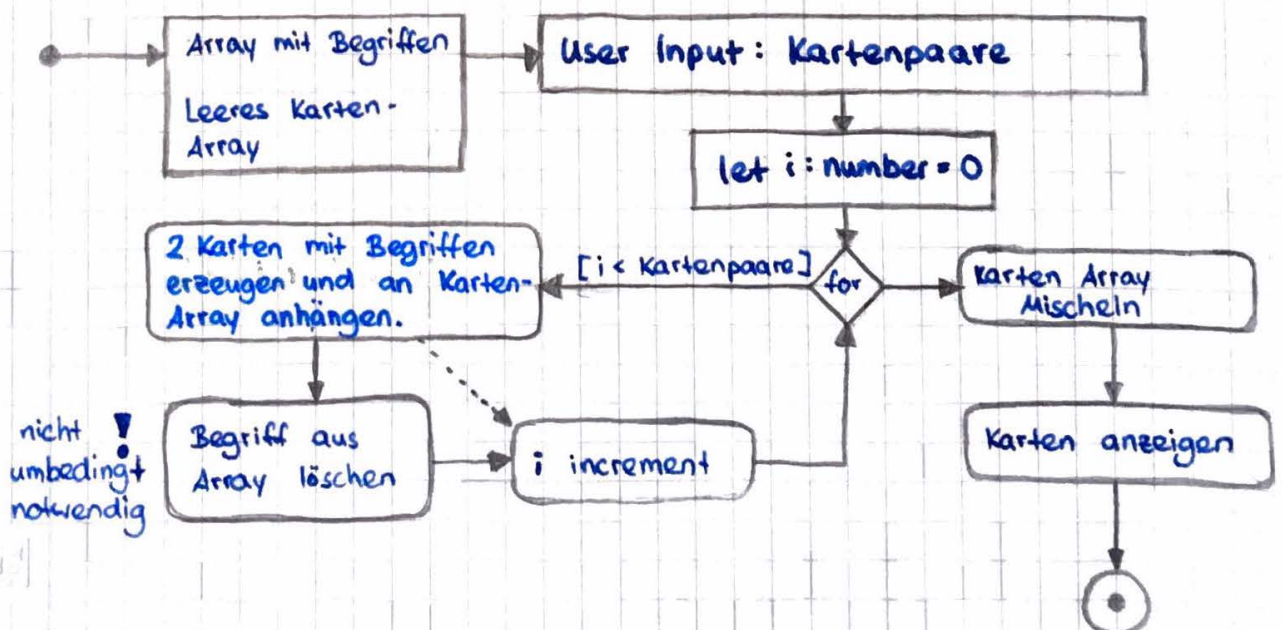 Array mit Begriffen
Leeres Karten-
Array
User Input: Kartenpaare
let i: number = 0
2 Karten mit Begriffen
erzeugen und an Karten-
Array anhängen.
[i < Kartenpaare]
for
Karten Array
Mischeln
nicht !
umbedingt
notwendig
Begriff aus
Array löschen
i increment
Karten anzeigen